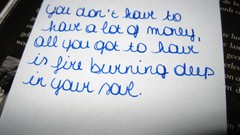 you don't have to
have a lot of money,
all you got to have
is fire burning deep
in your soul.